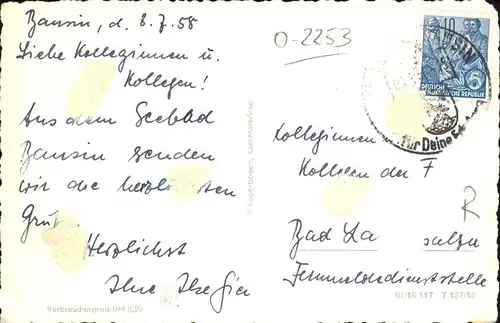 Bansin, d. 8.7.58
O-2253
Liebe Kolleginnen u.
Kollegen!
Aus dem Seebad
Bansin senden
wir die herzlichsten
Grüße
Herzlichst
Ihre
10
DEUTSCHE
DEMOKRATISCHE REPUBLIK
BANSIN
für Deine
Kolleginnen
Kollegen der F
R
Bad La salza
Fernmeldedienststelle
III/18 117 T 137/53
Verbraucherpreis DM 0,20